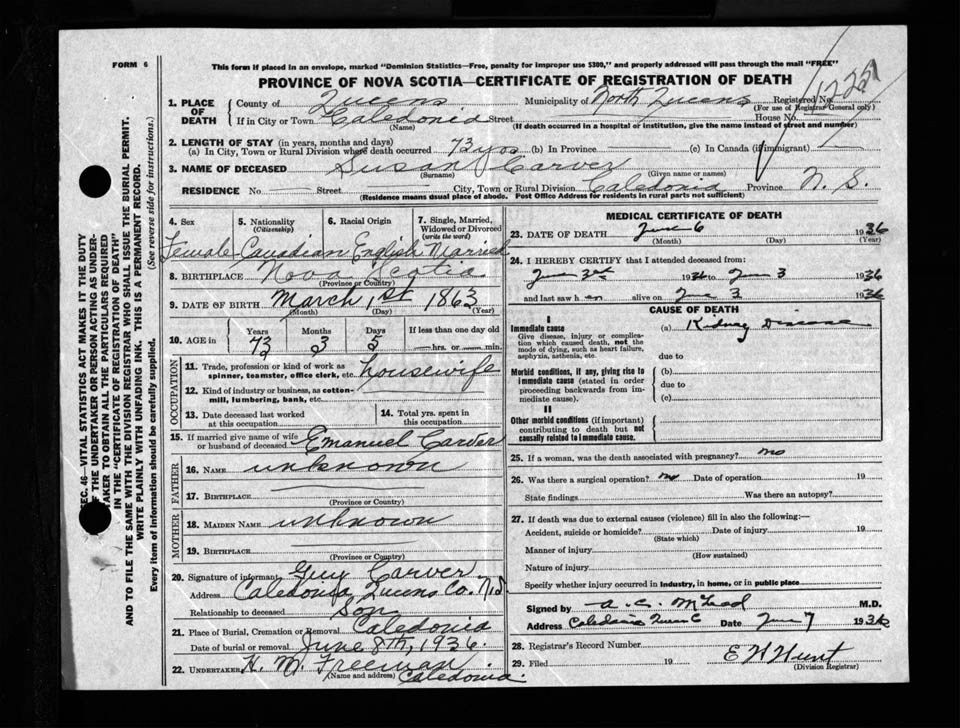 FORM 6
This form if placed in an envelope, marked "Dominion Statistics—Free, penalty for improper use $300," and properly addressed will pass through the mail "FREE"
PROVINCE OF NOVA SCOTIA—CERTIFICATE OF REGISTRATION OF DEATH
1. PLACE OF DEATH County of Queens Municipality of North Queens Registered No. 1225
(For use of Registrar General only)
If in City or Town Caledonia Street House No.
(Name) (If death occurred in a hospital or institution, give the name instead of street and number)
2. LENGTH OF STAY (in years, months and days)
(a) In City, Town or Rural Division where death occurred 73 yrs (b) In Province (c) In Canada (if immigrant)
3. NAME OF DECEASED Susan Carver
(Surname) (Given name or names)
RESIDENCE No Street City, Town or Rural Division Caledonia Province N. S.
(Residence means usual place of abode. Post Office Address for residents in rural parts not sufficient)
4. Sex 5. Nationality (Citizenship) 6. Racial Origin 7. Single, Married, Widowed or Divorced (write the word)
Female Canadian English Married
8. BIRTHPLACE Nova Scotia
(Province or Country)
9. DATE OF BIRTH March 1st 1863
(Month) (Day) (Year)
10. AGE in Years Months Days If less than one day old
73 3 5 hrs. or min.
OCCUPATION
11. Trade, profession or kind of work as spinner, teamster, office clerk, etc. housewife
12. Kind of industry or business, as cotton-mill, lumbering, bank, etc.
13. Date deceased last worked at this occupation
14. Total yrs. spent in this occupation
15. If married give name of wife or husband of deceased Emanuel Carver
FATHER
16. NAME unknown
17. BIRTHPLACE
(Province or Country)
MOTHER
18. MAIDEN NAME unknown
19. BIRTHPLACE
(Province or Country)
20. Signature of informant Guy Carver
Address Caledonia Queens Co.
Relationship to deceased Son
21. Place of Burial, Cremation or Removal Caledonia
Date of burial or removal June 8th, 1936.
22. UNDERTAKER H. M. Freeman
(Name and address) Caledonia.
MEDICAL CERTIFICATE OF DEATH
23. DATE OF DEATH June 6 1936
(Month) (Day) (Year)
24. I HEREBY CERTIFY that I attended deceased from:
June 3rd 1936 to June 3 1936
and last saw h er alive on June 3 1936
CAUSE OF DEATH
I
Immediate cause (a) Kidney Disease
Give disease, injury or complication which caused death, not the mode of dying, such as heart failure, asphyxia, asthenia, etc.
due to
Morbid conditions, if any, giving rise to immediate cause (stated in order proceeding backwards from immediate cause).
(b)
due to
(c)
II
Other morbid conditions (if important) contributing to death but not causally related to immediate cause.
25. If a woman, was the death associated with pregnancy? no
26. Was there a surgical operation? no Date of operation 19
State findings Was there an autopsy?
27. If death was due to external causes (violence) fill in also the following:—
Accident, suicide or homicide? Date of injury 19
(State which)
Manner of injury
(How sustained)
Nature of injury
Specify whether injury occurred in industry, in home, or in public place
Signed by A. C. McLeod M.D.
Address Caledonia Queens C Date June 7 1936
28. Registrar's Record Number
29. Filed 19 E H Hunt
(Division Registrar)
SEC. 46—VITAL STATISTICS ACT MAKES IT THE DUTY
OF THE UNDERTAKER OR PERSON ACTING AS UNDER-
TAKER TO OBTAIN ALL THE PARTICULARS REQUIRED
IN THE "CERTIFICATE OF REGISTRATION OF DEATH"
AND TO FILE THE SAME WITH THE DIVISION REGISTRAR WHO SHALL ISSUE THE BURIAL PERMIT.
WRITE PLAINLY WITH UNFADING INK. THIS IS A PERMANENT RECORD.
Every item of information should be carefully supplied. (See reverse side for instructions.)